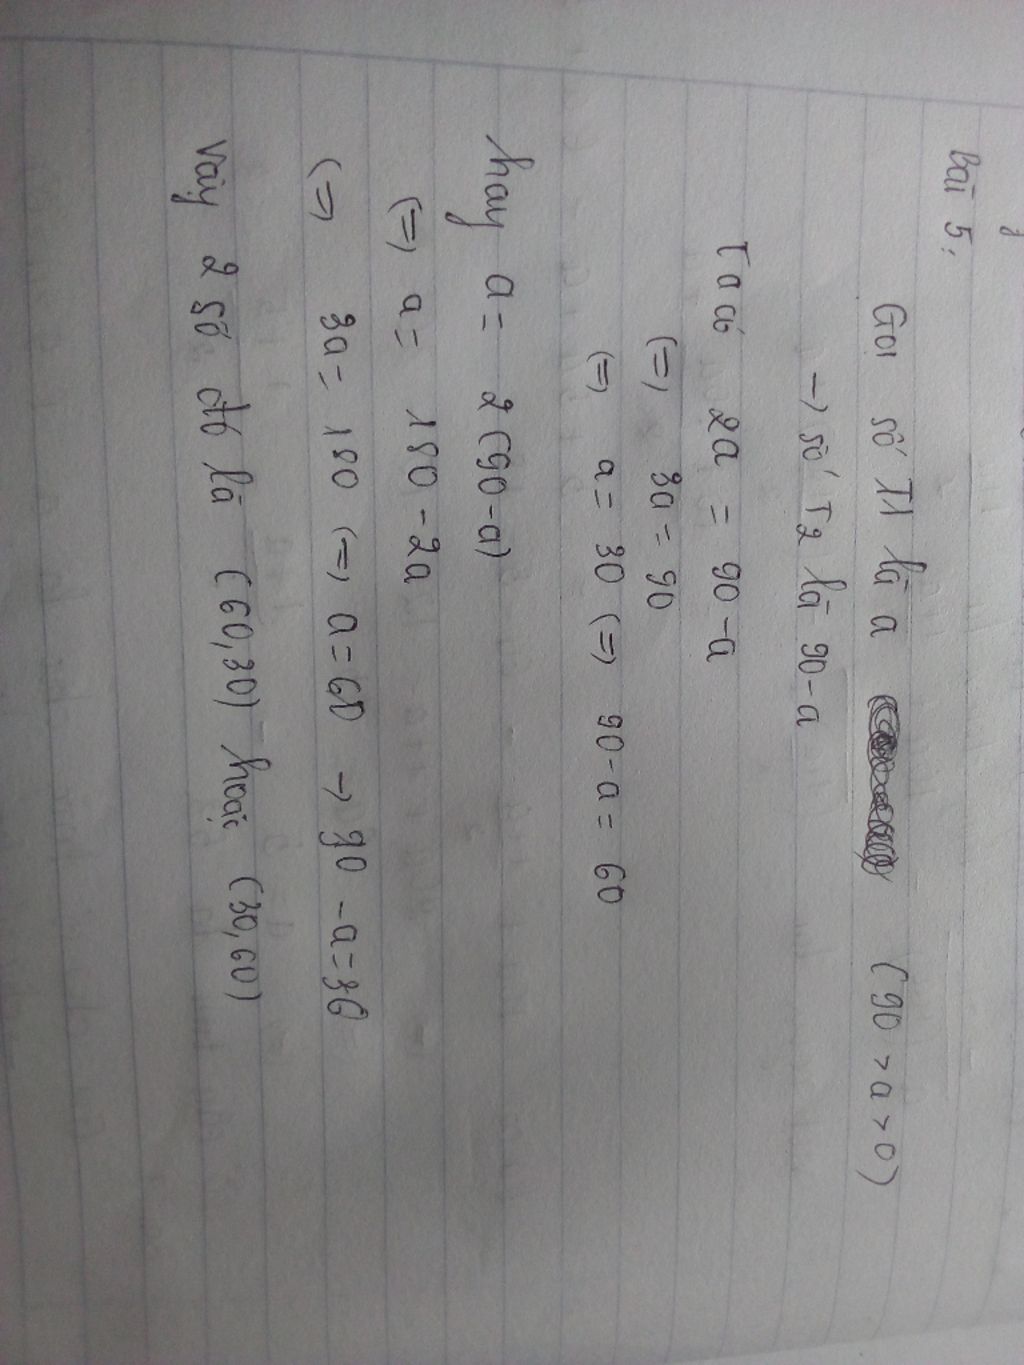 Bài 5:
Gọi số T1 là a (90 > a > 0)
→ số T2 là 90-a
Ta có 2a = 90-a
(=) 3a = 90
(=) a = 30 (=) 90-a = 60
hay a = 2(90-a)
(=) a = 180-2a
(=) 3a = 180 (=) a = 60 → 90-a = 30
Vậy 2 số đó là (60,30) hoặc (30,60)